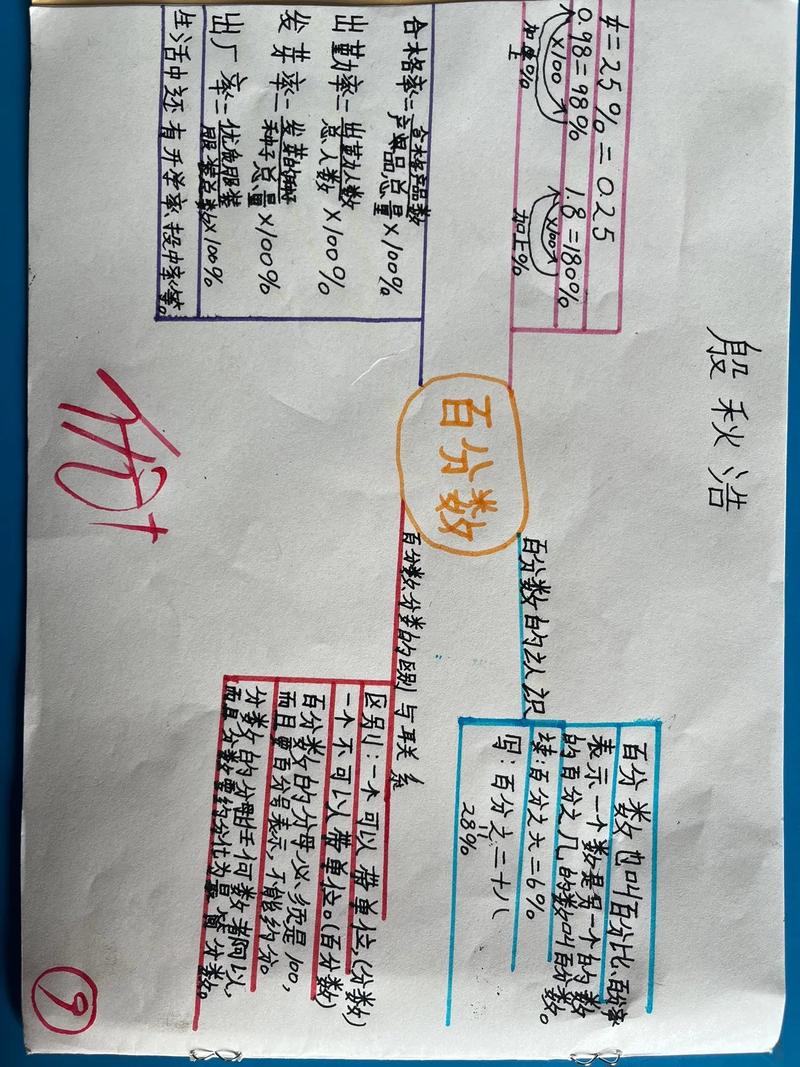 殷秋浩
百分数
¼=25%=0.25
0.98=98%
×100
加上%
1.8=180%
×100
加上%
合格率=合格产品数/产品总量×100%
出勤率=出勤人数/总人数×100%
发芽率=发芽的种子/种子总量×100%
出厂率=优质服装/服装总数×100%
生活中还有升学率、投中率等。
百分数的认识
百分数也叫百分比、百分率
表示一个数是另一个的数
的百分之几的数叫百分数。
读:百分之六=6%
写:百分之二十八
=
28%
百分数、分数的区别与联系
区别:一个可以带单位,(分数)
一个不可以带单位。(百分数)
百分数的分母必须是100,
而且要百分号表示,不能约分。
分数的分母任何数都可以,
而且分数要约分化为最简分数。
优+
9